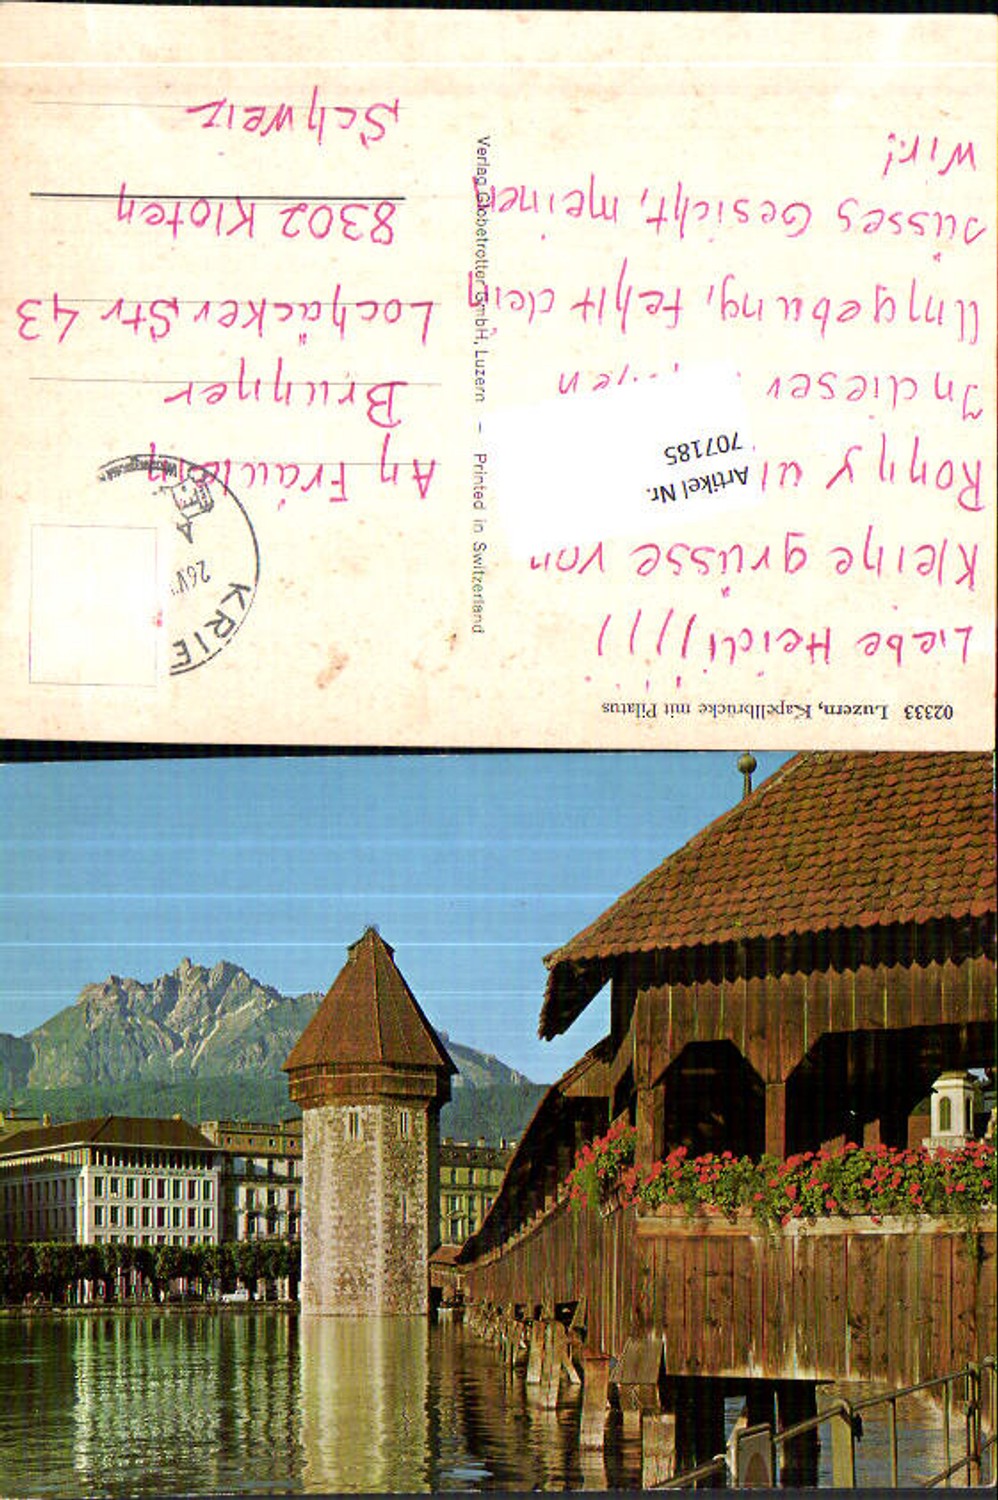 02333 Luzern, Kapellbrücke mit Pilatus
Liebe Heidi!!!!!
Kleine grüsse von
Ronny
In dieser
Umgebung, fehlt dein
süsses Gesicht, meinen
Wir!
Artikel Nr.
707185
Verlag Globetrotter GmbH, Luzern – Printed in Switzerland
KRIE
An Fräulein
Brunner
Lochäcker Str 43
8302 Kloten
Schweiz